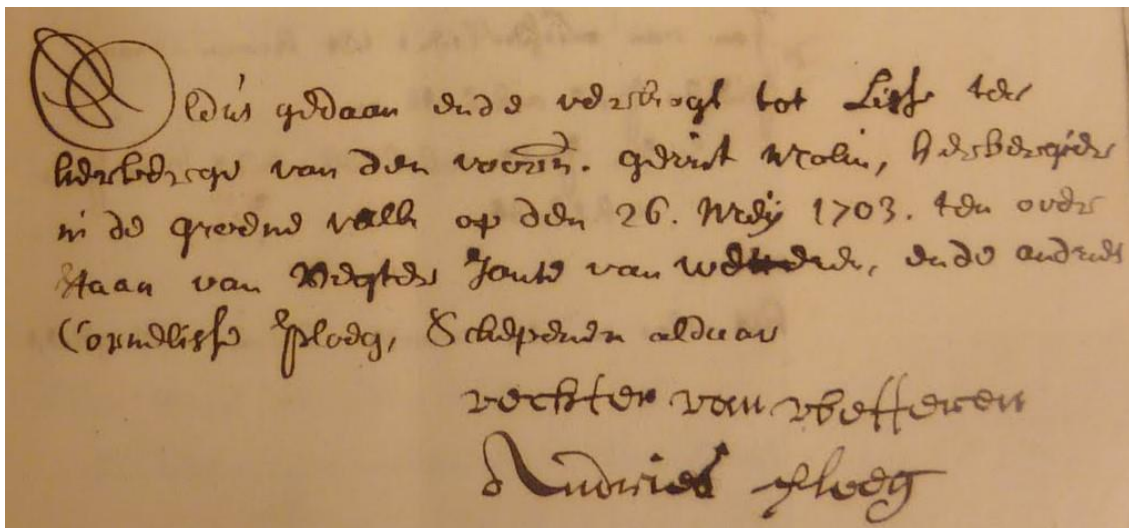 Aldus gedaan ende verkogt tot Lisse ter
herberge van den voorn. gerrit Molin, herbergier
in de groene valk op den 26. Meij 1703. ten over
staan van Vegter Jante van wetteren, ende andries
Cornelisse Ploeg, Schepenen aldaar
vechter van wetteren
Andries Ploeg